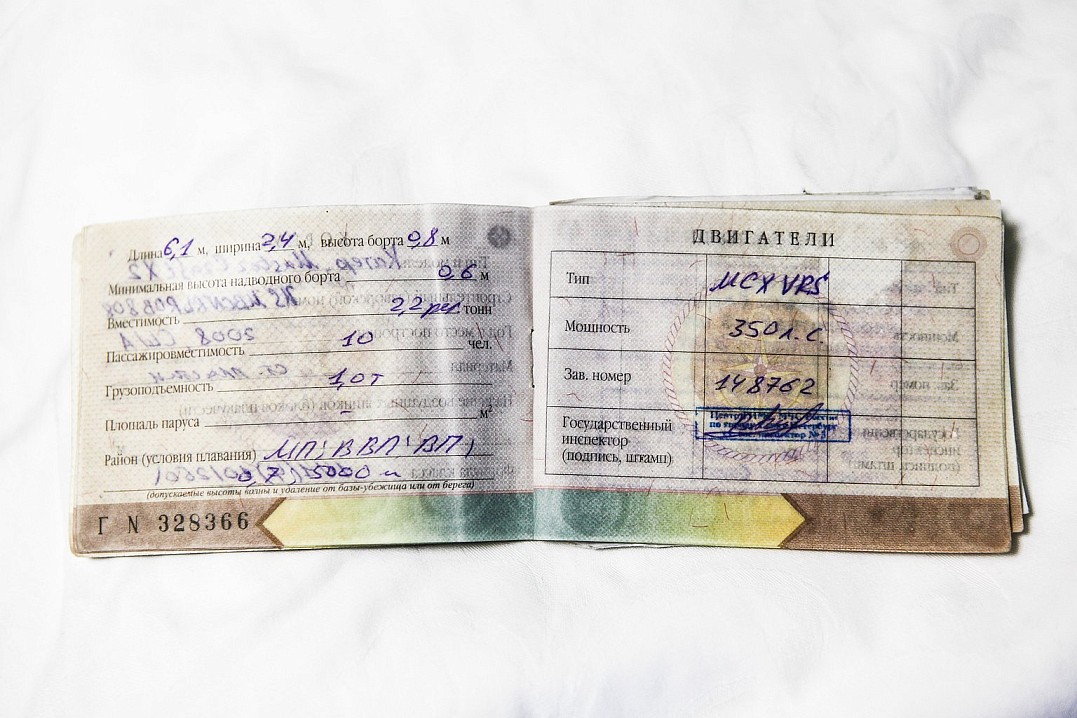 Длина 6,1 м, ширина 2,4 м, высота борта 0,8 м
Минимальная высота надводного борта 0,6 м
Вместимость 2,2 рег. тонн
Пассажировместимость 10 чел.
Грузоподъемность 1,0 т
Площадь паруса - м²
Район (условия плавания) МП; ВВП; ВП;
(допускаемые высоты волны и удаление от базы-убежища или от берега)
Г N 328366
ДВИГАТЕЛИ
Тип MCX VRS
Мощность 350 л.с.
Зав. номер 148762
Государственный
инспектор
(подпись, штамп)